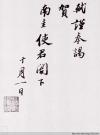 軾謹奉謁
賀
南圭使君閣下
十月一日